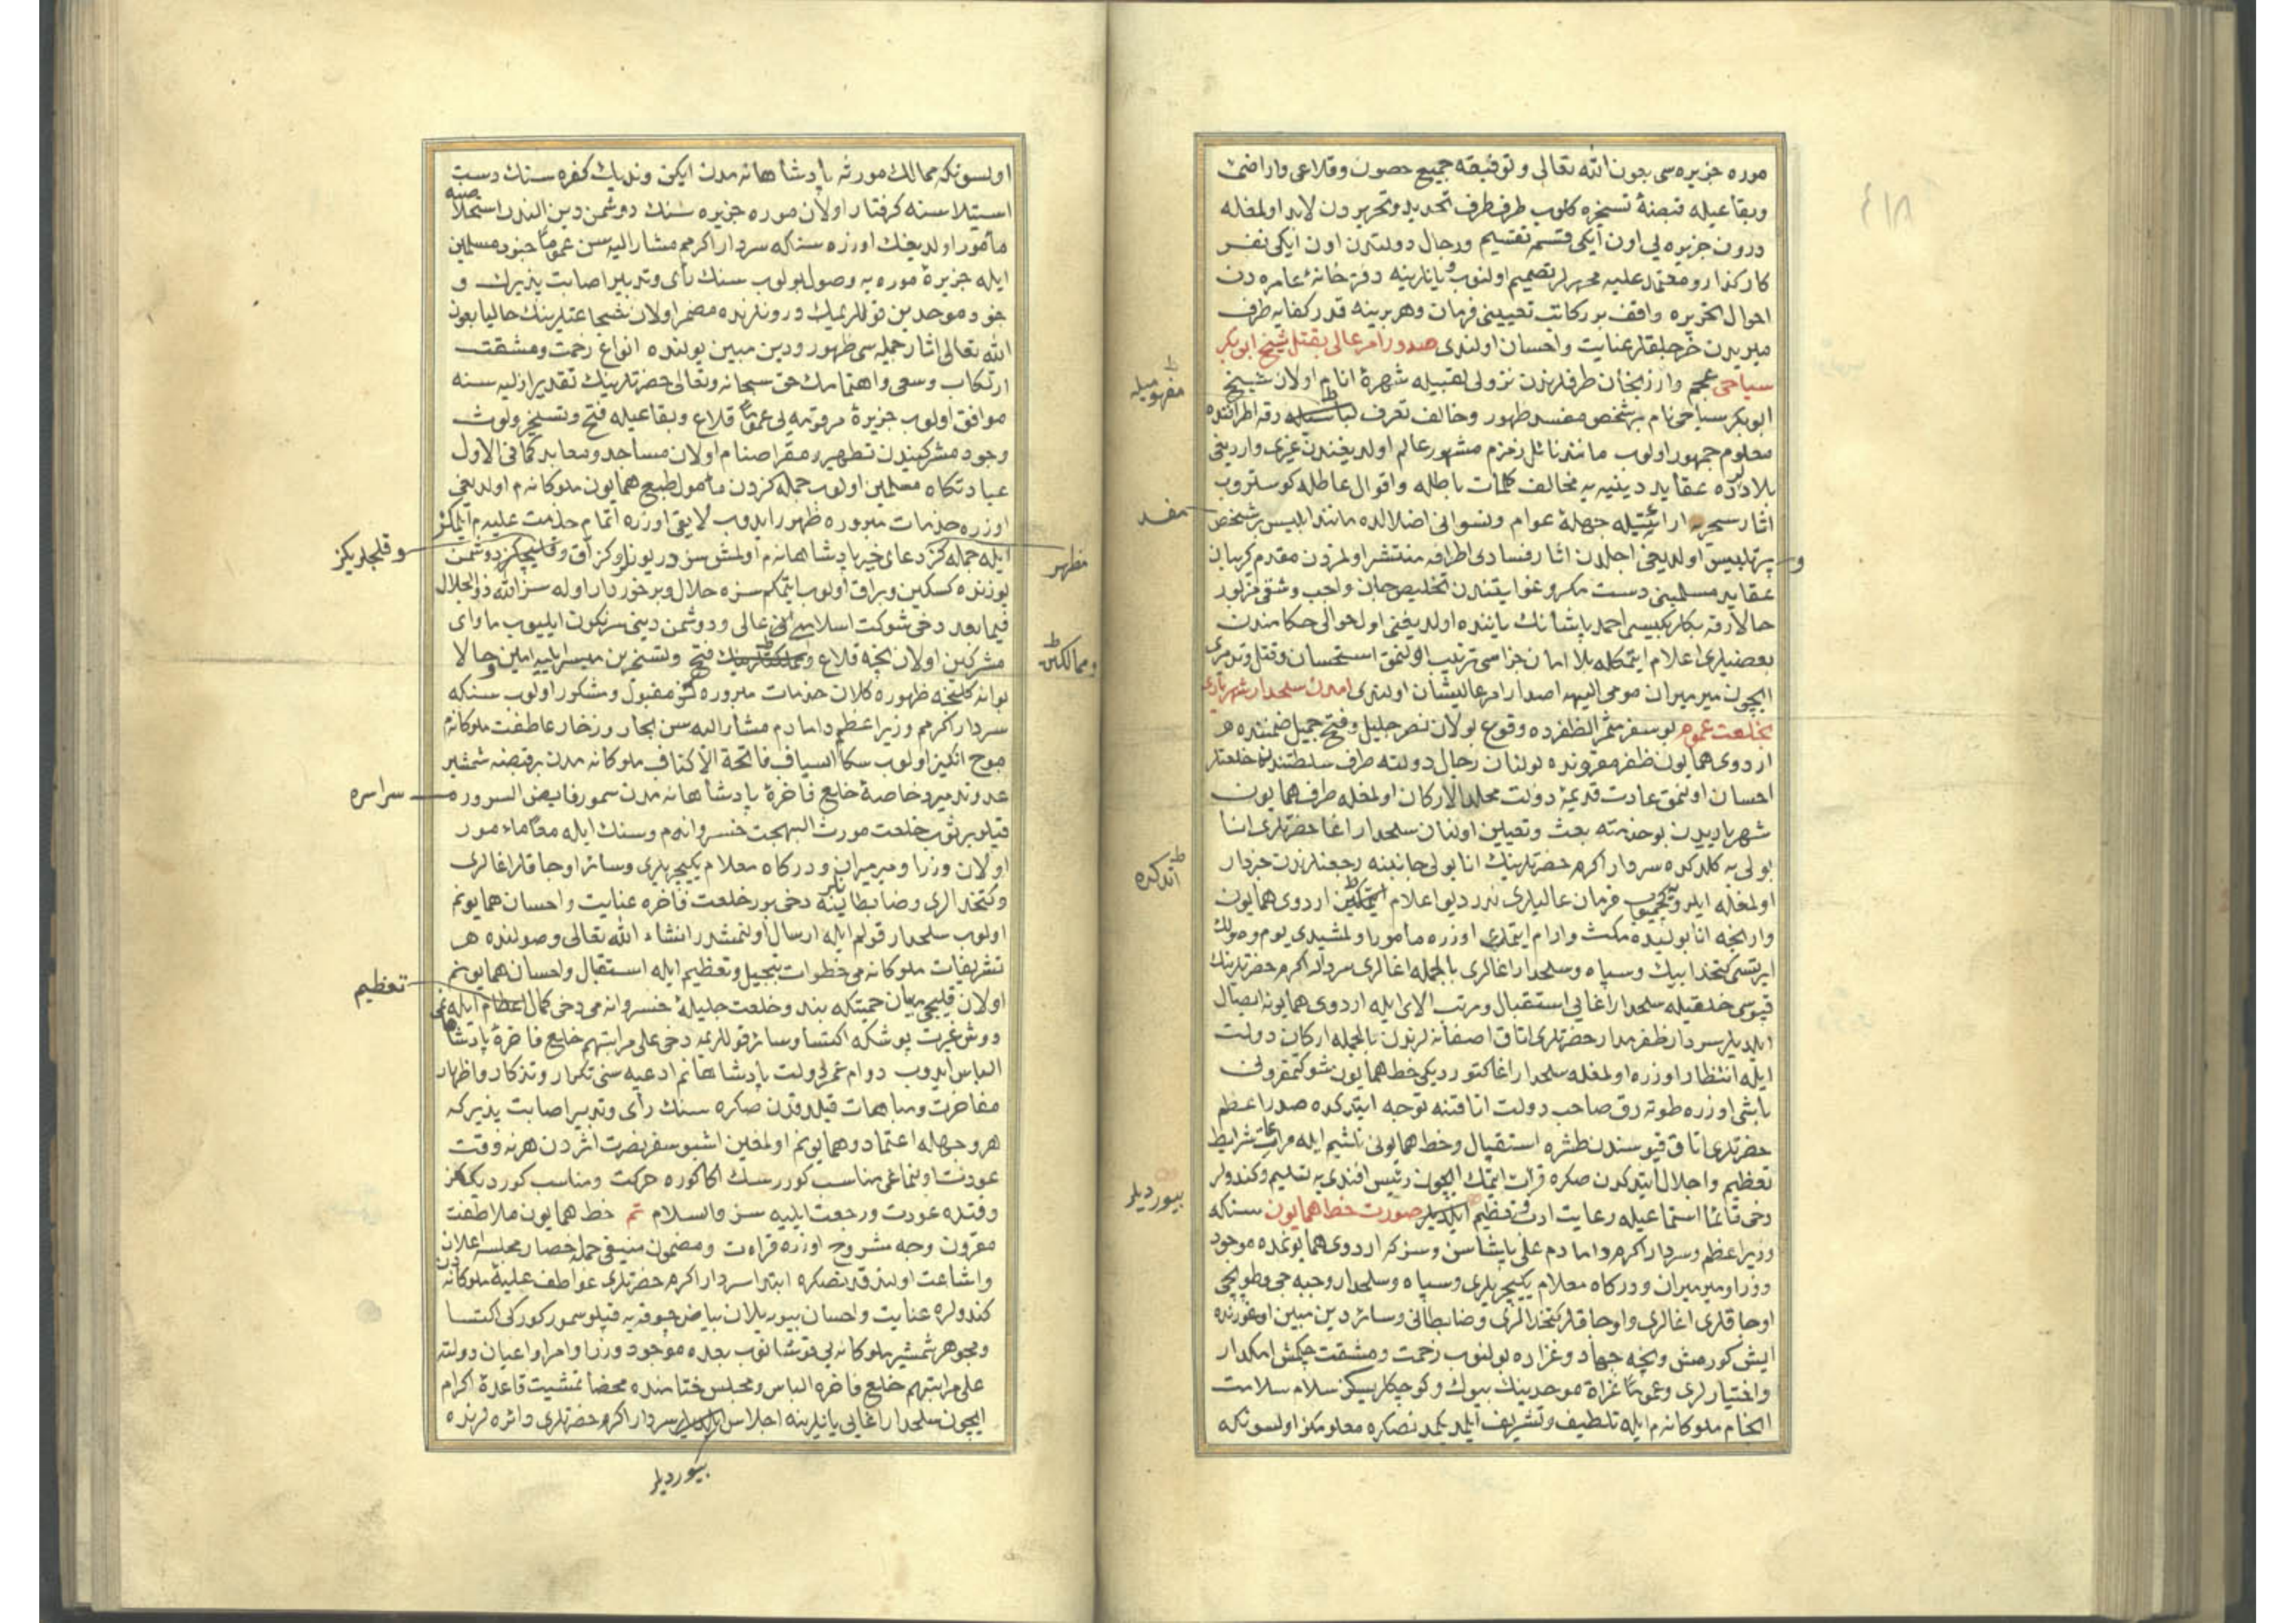 موره جزیره سی بعون الله تعالی و توفیقه جمیع حصون و قلاعی و اراضی
و بقاعیله قبضۀ تسخیره کلوب طرف طرف تحدید و تحریردن لابد اولمغله
درون جزیره یی اون ایکی قسمه تقسیم و رجال دولتدن اون ایکی نفر
کارکذار و معتمد علیه محررلر تصمیم اولنوب و یانلرینه دفترخانۀ عامره دن
احوال تحریره واقف بر کاتب تعیینی فرمان و هر برینه قدر کفایه طرف
میریدن خرجلقلر عنایت و احسان اولندی صدور امر عالی بقتل شیخ ابوبکر
سیاحی عجم وارزنجان طرفلرندن نزولی تقبیله شهرۀ انام اولان شیخ
ابوبکر سیاحی نام بر شخص مفسد ظهور و خالف تعرف رقه اطرافنده
معلوم جمهور اولوب مانند نائل زمزم مشهور عالم اولدیغندن غیری واردیغی
بلادده عقاید دینیه یه مخالف کلمات باطله و اقوال عاطله کوستروب
اثار سحریه ارائتیله جهلۀ عوام و نسوانی اضلالده مانند ابلیس بر شخص
پرتلبیس اولدیغی اجلدن اثار فسادی اطرافه منتشر اولمزدن مقدم کریبان
عقاید مسلمینی دست مکر و غوایتندن تخلیص جان واجب و شقی مزبور
حالا رقه بکلربکیسی احمد پاشانك یاننده اولدیغنی اول حوالی حکامندن
بعضیلری اعلام ایتمکله بلا امان جزاسی ترتیب اولنمق استحسان و قتل و تدمیری
ایچون میرمیران مومی الیهه اصدار امر عالیشان اولندی امدن سلحدار شهریاری
بخلعت عموم بو سفر مثمر الظفرده وقوع بولان نصر جلیل و فتح جمیل ضمننده هر
اردوی همایون ظفرمقروننده بولنان رجال دولته طرف سلطنتدن خلعتلر
احسان اولنمق عادت قدیمۀ دولت مخلد الارکان اولمغله طرف همایون
شهریاریدن بو خدمته بعث و تعیین اولنان سلحدار اغا حضرتلری انا
بولی یه کلدکده سردار اکرم حضرتلرینك انابولی جانبنه رجعتلرندن خبردار
اولمغله ایلرو کچمیوب فرمان عالیلری نه در دیو اعلام ایتمکین اردوی همایون
وارنجه انابولیده مکث و ارام ایتمك اوزره مامور اولمشیدی یوم وصولك
ایرتسی کتخدا بیك و سپاه و سلحدار اغالری بالجمله اغالری سردار اکرم حضرتلرینك
قپوسی خلقیله سلحدار اغایی استقبال و مرتب الای ایله اردوی همایونه ایصال
ایلدیلر سردار ظفرمدار حضرتلری اتاق اصفانه لرندن بالجمله ارکان دولت
ایله انتظار اوزره اولمغله سلحدار اغا کتوردیکی خط همایون شوکتمقرونی
باشی اوزره طوته رق صاحب دولت اتاقنه توجه ایتدکده صدر اعظم
حضرتلری اتاق قپوسندن طشره استقبال و خط همایونی تلثیم ایله مراعات شرایط
تعظیم و اجلال ایتدکدن صکره قرائت ایتمك ایچون رئیس افندی یه تسلیم و کندولر
دخی قائما استماعیله رعایت ادب و تعظیم ایلدیلر صورت خط همایون سنکه
وزیر اعظم و سردار اکرم و دامادم علی پاشاسن و سز که اردوی همایونمده موجود
وزرا و میرمیران و درکاه معلام یکیچریلری و سپاه و سلحدار و جبه جی و طوپجی
اوجاقلری اغالری و اوجاقلر کتخدالری و ضابطانی و سائر دین مبین اوغورنده
ایش کورمش و نجه جهاد و غزاده بولنوب زحمت و مشقت چکمش امکدار
و اختیارلری و عموما غزاة موحدینك بیوك و کوچکلریسکز سلام سلامت
انجام ملوکانه م ایله تلطیف و تشریف ایلدیکمدنصکره معلومکز اولسونکه
مفهومیله
مفسد
و
اتدکده
بیوردیلر
اولسونکه ممالك موروثه پادشاهانه مدن ایکن وندیك کفره سنك دست
استیلاسنه کرفتار اولان موره جزیره سنك دوشمن دین الندن استخلاصنه
مأمور اولدیغك اوزره سنکه سردار اکرمم مشار الیه سن عموما جنود مسلمین
ایله جزیرۀ موره یه وصول بولوب سنك رأی و تدبیر اصابت پذیرك و
جنود موحدین قوللریمك درونلرنده مضمر اولان شجاعتلرینك حالیا بعون
الله تعالی اثار جمله سی ظهور و دین مبین یولنده انواع زحمت و مشقت
ارتکاب و سعی و اهتمامك حق سبحانه و تعالی حضرتلرینك تقدیر ازلیه سنه
موافق اولوب جزیرۀ مرقومه یی عموما قلاع و بقاعیله فتح و تسخیر و لوث
وجود مشرکیندن تطهیر و مقر اصنام اولان مساجد و معابد کما فی الاول
عبادتکاه مسلمین اولوب جمله کزدن مأمول طبع همایون ملوکانه م اولدیغی
اوزره خدمات مبروره ظهور ایدوب لایقی اوزره اتمام خدمت علیه م ایتمکز
ایله جمله کز دعای خیر پادشاهانه م اولمشسز در یوزلرکز آق و قلیچکز دوشمن
یوزنده کسکین و براق اولوب ایتمکم سزه حلال و برخوردار اوله سز الله ذو الجلال
فیما بعد دخی شوکت اسلامیه یی عالی و دوشمن دینی سرنکون ایلیوب ماوای
مشرکین اولان نجه قلاع فتح و تسخیرین میسر ایلیه امین و حالا
بوانه کلنجه ظهوره کلان خدمات مبروره کز مقبول و مشکور اولوب سنکه
سردار اکرمم وزیر اعظم و دامادم مشار الیه سن بحار زخار عاطفت ملوکانه م
موج انکیز اولوب سکا السیاف فاتحة الاکناف ملوکانه مدن بر قبضه شمشیر
عدو تدمیر و خاصۀ خلیع فاخرۀ پادشاهانه مدن سمور فایض السروره
قپلو بر ثوب خلعت مورث البهجت خسروانه م و سنك ایله معا مامور
اولان وزرا و میرمیران و درکاه معلام یکیچریلری و سائر اوجاقلر اغالری
و کتخدالری و ضابطانینه دخی بور خلعت فاخره عنایت و احسان همایونم
اولوب سلحدار قولم ایله ارسال اولنمشدر انشاء الله تعالی وصولنده هر
تشریفات ملوکانه می خطوات تبجیل و تعظیم ایله استقبال و احسان همایونم
اولان قلیچی میان حمیتکه بند و خلعت جلیلۀ خسروانه می دخی کمال اعظام ایله
دوش غیرت پوشکه اکتسا و سائر قوللریمه دخی علی مراتبهم خلیع فاخرۀ پادشاهانه می
الباس ایدوب دوام عمر و دولت پادشاهانه م ادعیه سنی تکرار و تذکار و اظهار
مفاخرت و مباهات قیلدقدن صکره سنك رأی و تدبیر اصابت پذیرکه
هر وجهله اعتماد همایونم اولمغین اشبو سفر نصرت اثردن هر نه وقت
عودت اولنماغی مناسب کوررسك اکا کوره حرکت و مناسب کوردیکك
وقتده عودت و رجعت ایلیه سز والسلام تم خط همایون ملاطفت
مقرون وجه مشروح اوزره قراءت و مضمون منیفی جمله حضار مجلسه اعلان
و اشاعت اولندقدنصکره ابتدا سردار اکرم حضرتلری عواطف علیۀ ملوکانه دن
کندولره عنایت و احسان بیوریلان بیاض چوقه یه قپلو سمور کورکی اکتسا
و مجوهر شمشیر ملوکانه یی قوشانوب بعده موجود وزرا و امرا و اعیان دولته
علی مراتبهم خلیع فاخره الباس و مجلس ختامنده محضا تمشیت قاعدۀ اکرام
ایچون سلحدار اغایی یانلرینه اجلاس ایلدیلر سردار اکرم حضرتلری دائره لرنده
مظهر
و قلیجلریکز
و ممالکن
سراسره
تعظیم
بیوردیلر